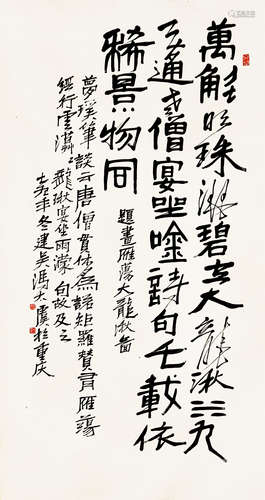 萬斛明珠濺碧空大龍湫水九
天通老僧宴坐唫詩句千載依
稀景物同
題畫雁蕩大龍湫圖
夢溪筆談云唐僧貫休為諾矩羅贊有雁蕩
經行雲漠漠龍湫宴坐雨濛濛句故及之
年冬建吴馮大虞於重庆